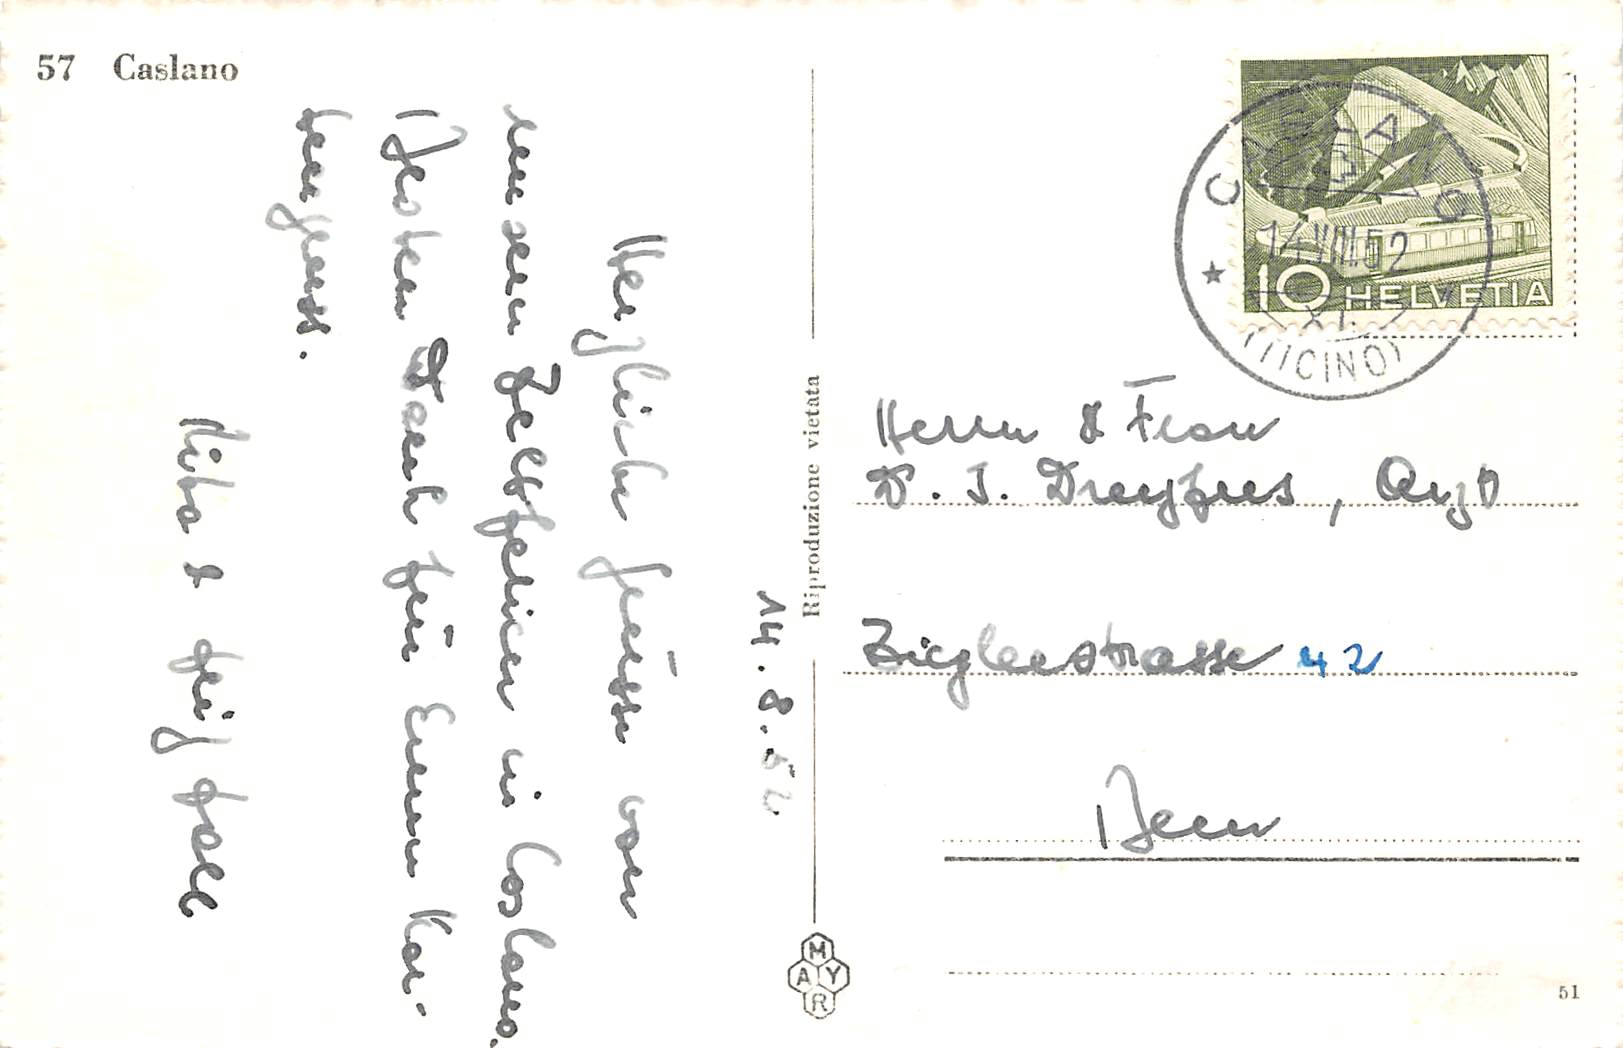 57 Caslano
14.8.52
Herzliche Grüsse von
unseren Zeltferien in Caslano.
Besten Dank für Euren Kar-
tengruss.
&
Riproduzione vietata
MAYR
CASLANO
14.VIII.52
(TICINO)
10 HELVETIA
Herrn & Frau
Dr. J. Dreyfus, Arzt
Zieglerstrasse 42
Bern
51